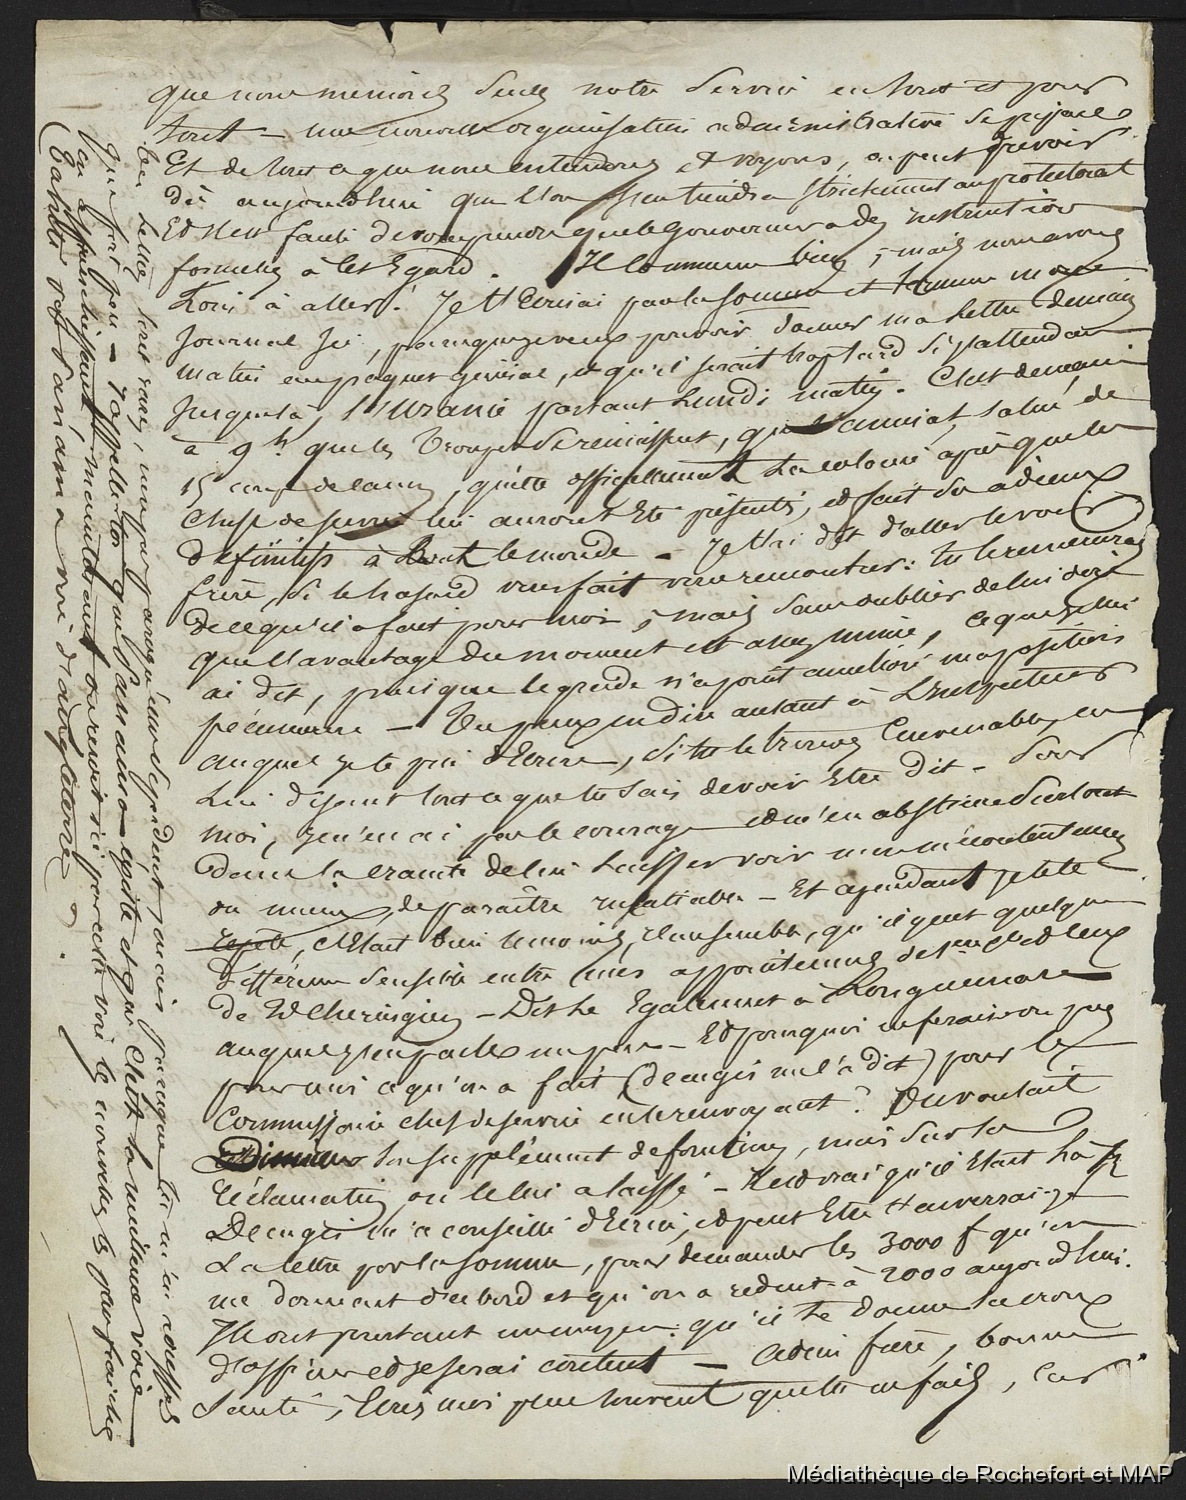 que nous menions seuls notre service en tout et pour
tout — une nouvelle organisation administrative se prépare
Et de tout ce que nous entendons et voyons, on peut prévoir
dès aujourd'hui que l'on s'en tiendra strictement au protectorat
Et s'est fauti de comprendre que le gouverneur a des instructions
formelles à cet Egard. Il commence bien ; mais nous avons
loin à aller ! Je t'écrirai par la Somme et terminerai mon
journal ici, parce que je veux pouvoir donner ma lettre demain
matin au paquet général, et qu'il serait trop tard si j'attendais
jusque là, l'Uranie partant Lundi matin. C'est demain
à 9h. que les troupes se réunissent, que l'amiral, salué de
15 coups de canon, quitte officiellement la colonie après que les
chefs de service lui auront été présentés, et fait ses adieux
définitifs à tout le monde — Je t'ai dit d'aller le voir
frère, si le hasard vous fait vous rencontrer : tu le remercieras
de ce qu'il a fait pour moi ; mais sans oublier de lui dire
que l'avantage du moment est assez mince, ce que je lui
ai dit, puisque le grade n'a point amélioré ma position
pécuniaire — Tu peux en dire autant à L'Inspecteur
auquel je te prie d'Ecrire, si tu le trouves convenable, en
lui disant tout ce que tu sais devoir être dit — Pour
moi, je n'en ai pas le courage et m'en abstiens surtout
dans la crainte de lui laisser voir mon mécontentement
ou mieux, de paraître insatiable — Et cependant je te le
répète, c'était bien le moins, ce me semble, qu'il y eut quelque
différence sensible entre mes appointements de 1ere Cl. et ceux
de 2e Chirurgien — Dis-le Egalement à Fonquernie
auquel j'en parle un peu — Et pourquoi ne ferait-on pas
pour moi ce qu'on a fait (de Cugis me l'a dit) pour le
Commissaire chef de service en le renvoyant ? On voulait
diminuer son supplément de fonctions, mais sur sa
réclamation, on le lui a laissé — Il est vrai qu'il était là
De Cugis m'a conseillé d'Ecrire, et peut être t'enverrai-je
La lettre par la Somme, pour demander les 3000 f qu'on
me donnait d'abord et qu'on a réduit à 2000 aujourd'hui.
Ils ont pourtant un moyen : qu'il te donne la croix
d'officier et je serai content — Adieu frère, bonne
santé ; Ecris moi plus souvent que tu ne fais, car
tes lettres sont rares, 
que fort peu — Rappelle toi que Panama existe et que c'est la meilleure voie
en affranchissant — maintenant on reçoit ici par cette voie les nouvelles les plus fraîches
(Tahiti par Panama voie d'angleterre) .
Médiathèque de Rochefort et MAP